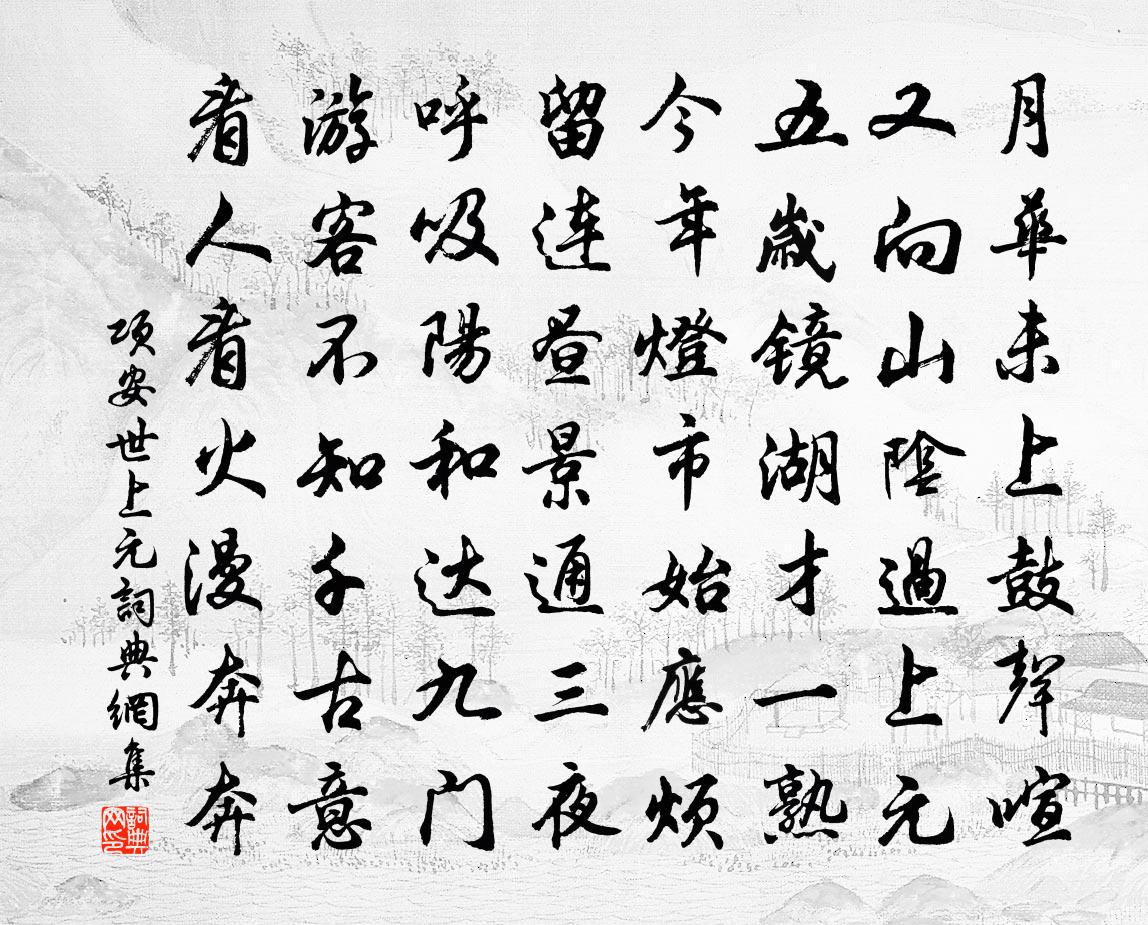 月華未上鼓聲喧
又向山陰過上元
五歲镜湖才一熟
今年燈市始應煩
留連昼景通三夜
呼吸陽和达九门
游客不知千古意
看人看火漫奔奔
項安世上元詞典網集
詞典網印